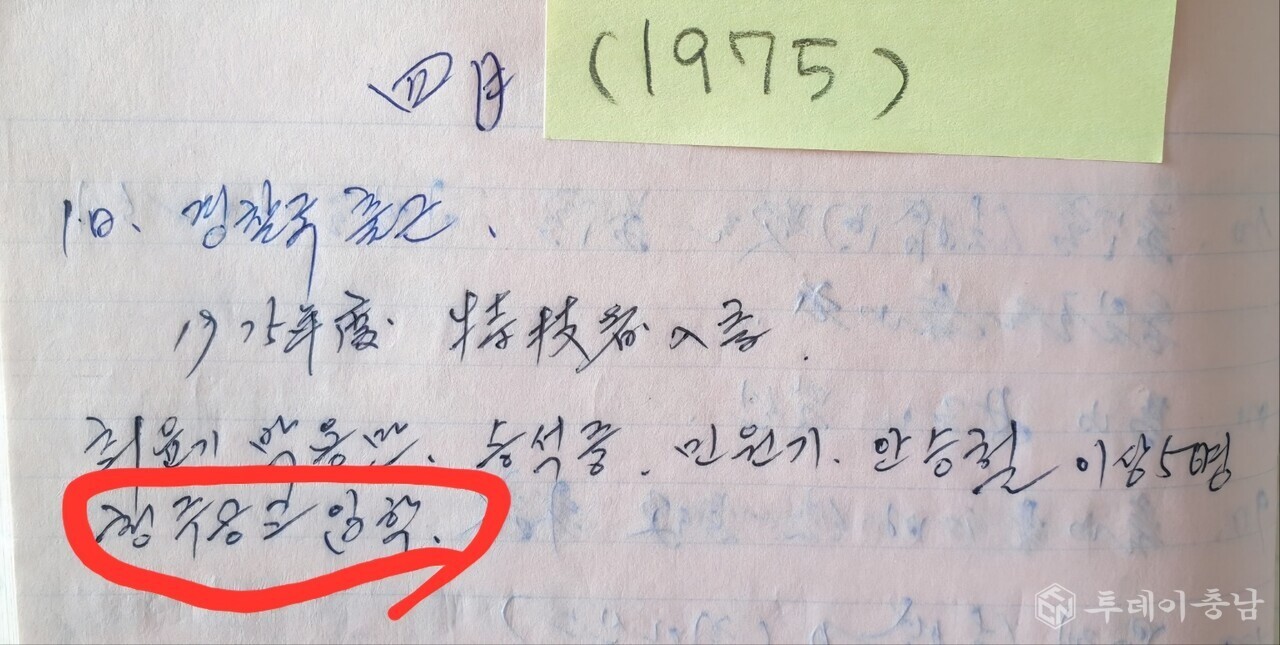 四月 (1975)
1日. 경찰국 출근.
1975年度 特技者 入증.
최윤기 박웅만. 송석중. 민원기. 안승철 이상5명
입학.
투데이충남